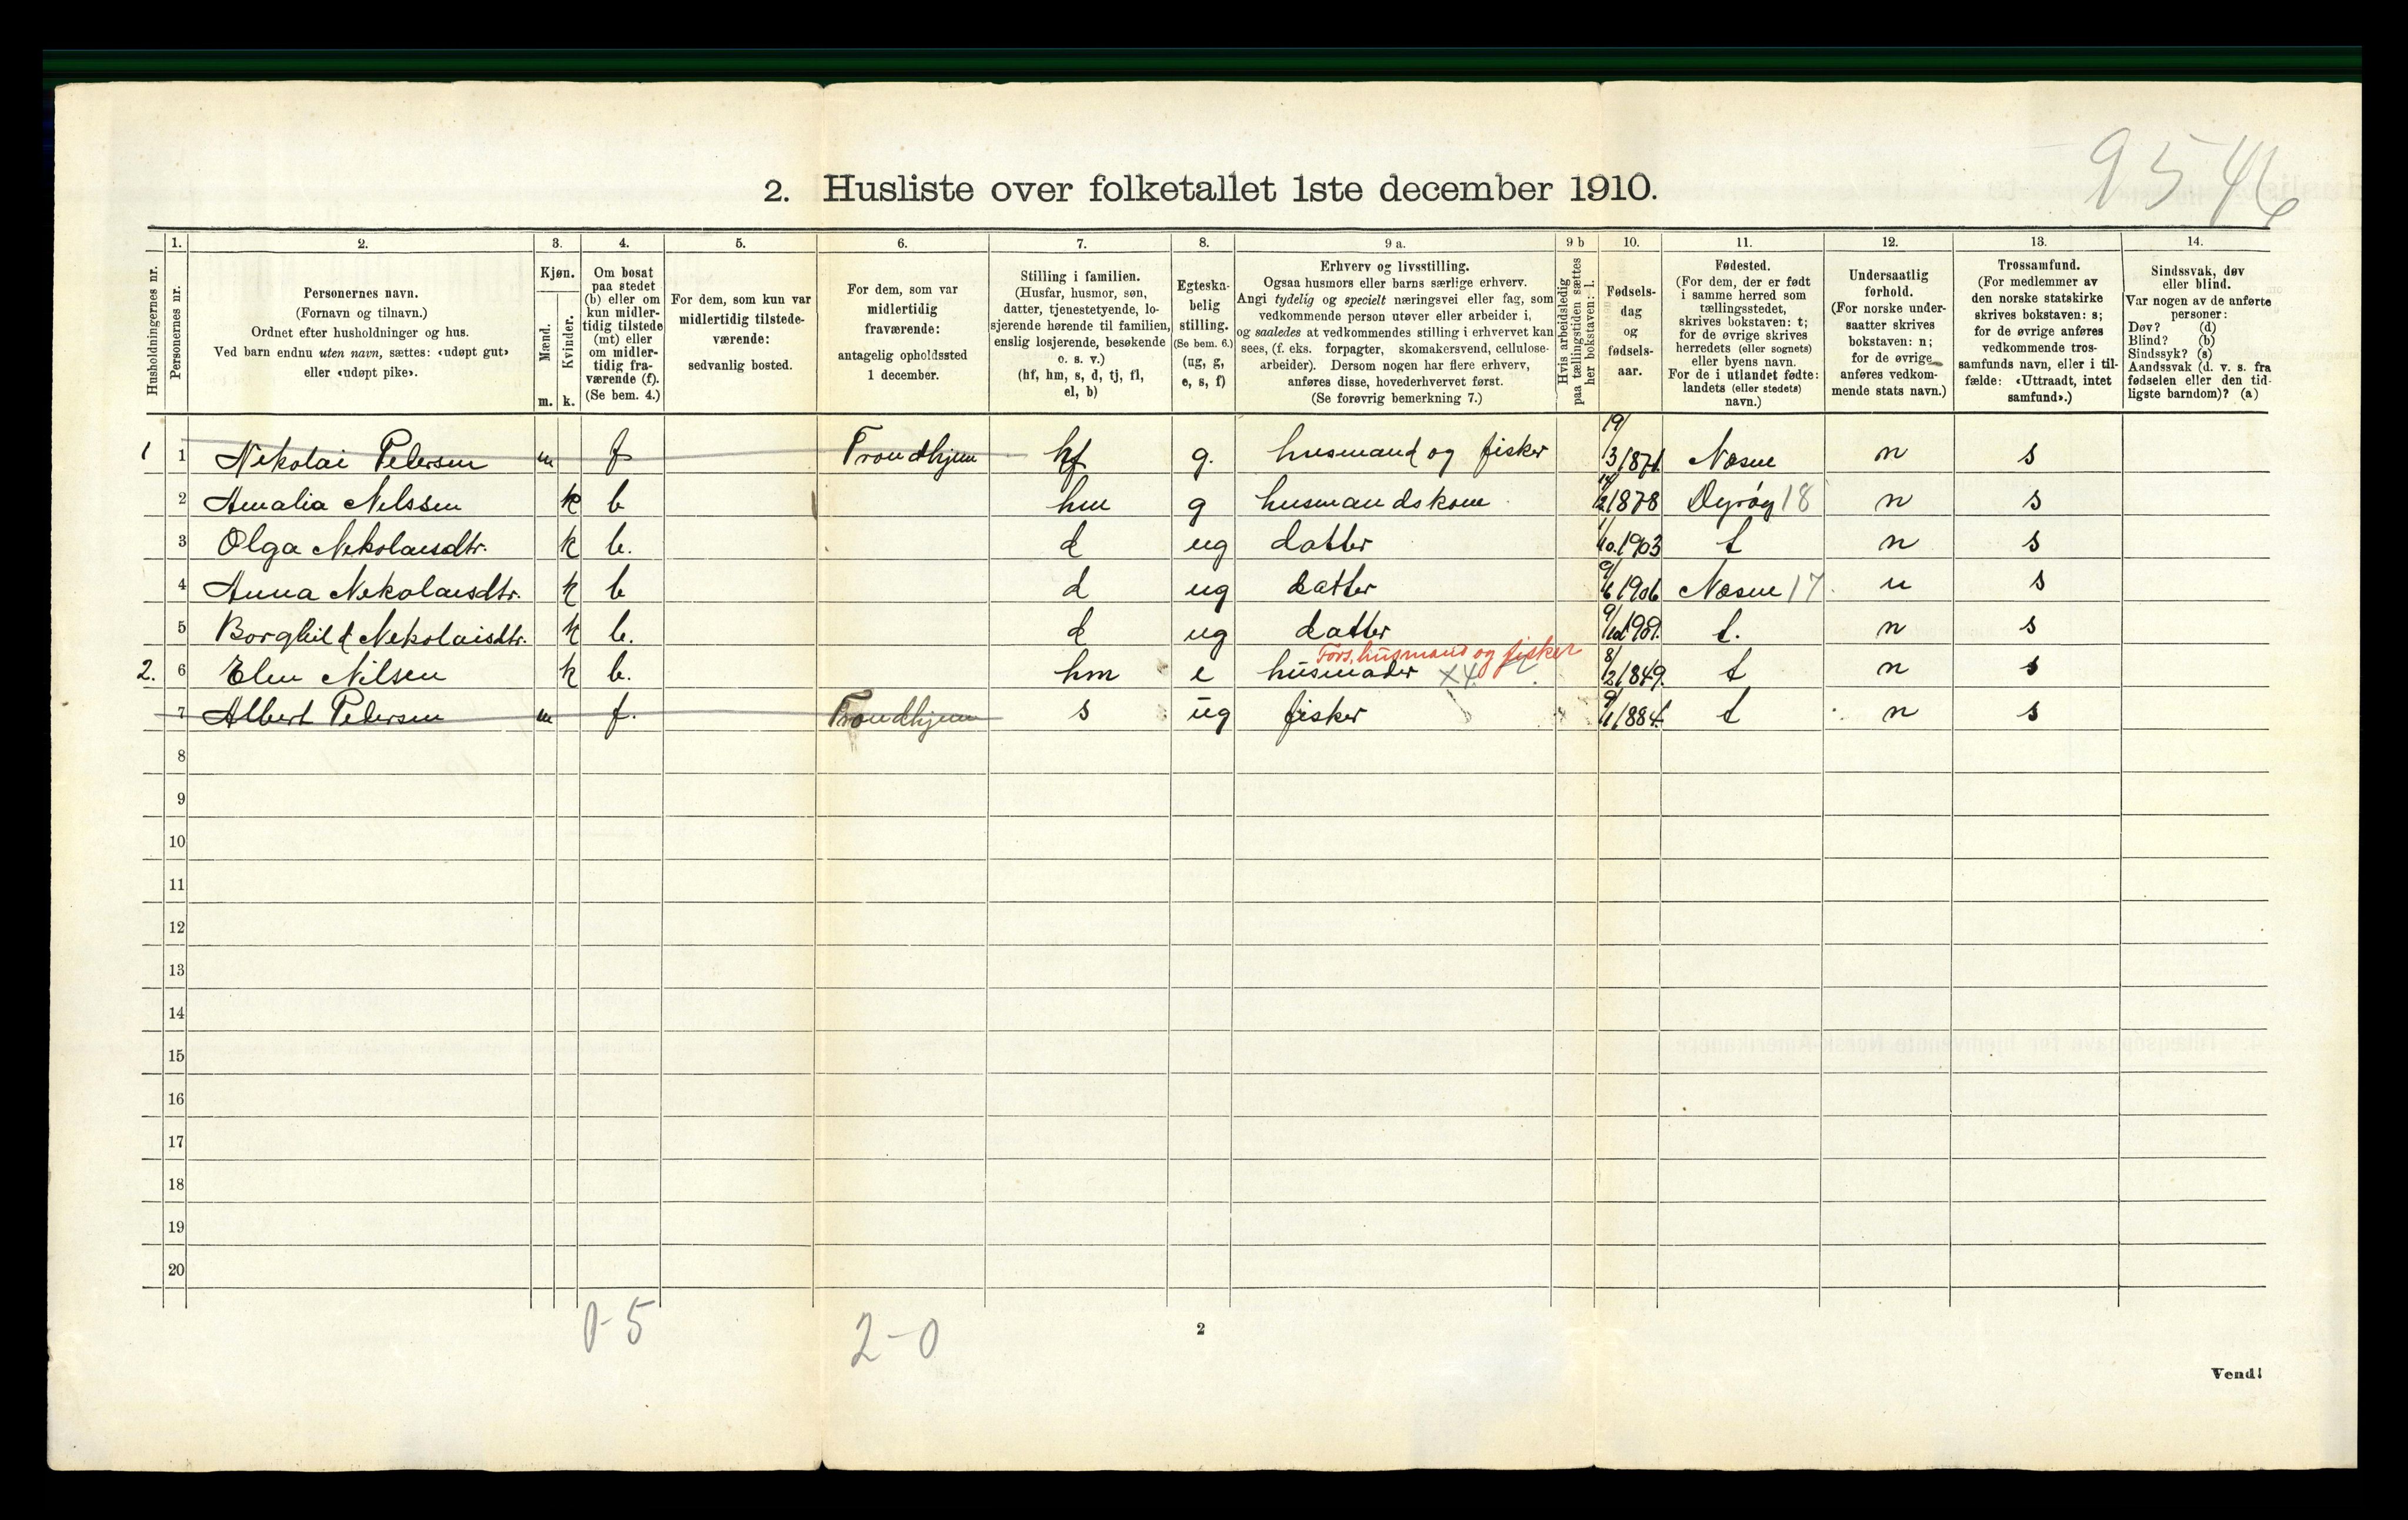 9546
2. Husliste over folketallet 1ste december 1910.
1. 2. 3. 4. 5. 6. 7. 8. 9 a. 9 b 10. 11. 12. 13. 14.
Husholdningernes nr.
Personernes nr.
Personernes navn.
(Fornavn og tilnavn.)
Ordnet efter husholdninger og hus.
Ved barn endnu uten navn, sættes: «udøpt gut»
eller «udøpt pike».
Kjøn.
Mænd.
Kvinder.
m. k.
Om bosat
paa stedet
(b) eller om
kun midler-
tidig tilstede
(mt) eller
om midler-
tidig fra-
værende (f).
(Se bem. 4.)
For dem, som kun var
midlertidig tilstede-
værende:
sedvanlig bosted.
For dem, som var
midlertidig
fraværende:
antagelig opholdssted
1 december.
Stilling i familien.
(Husfar, husmor, søn,
datter, tjenestetyende, lo-
sjerende hørende til familien,
enslig losjerende, besøkende
o. s. v.)
(hf, hm, s, d, tj, fl,
el, b)
Egteska-
belig
stilling.
(Se bem. 6.)
(ug, g,
e, s, f)
Erhverv og livsstilling.
Ogsaa husmors eller barns særlige erhverv.
Angi tydelig og specielt næringsvei eller fag, som
vedkommende person utøver eller arbeider i,
og saaledes at vedkommendes stilling i erhvervet kan
sees, (f. eks. forpagter, skomakersvend, cellulose-
arbeider). Dersom nogen har flere erhverv,
anføres disse, hovederhvervet først.
(Se forøvrig bemerkning 7.)
Hvis arbeidsledig
paa tællingstiden sættes
her bokstaven: l.
Fødsels-
dag
og
fødsels-
aar.
Fødested.
(For dem, der er født
i samme herred som
tællingsstedet,
skrives bokstaven: t;
for de øvrige skrives
herredets (eller sognets)
eller byens navn.
For de i utlandet fødte:
landets (eller stedets)
navn.)
Undersaatlig
forhold.
(For norske under-
saatter skrives
bokstaven: n;
for de øvrige
anføres vedkom-
mende stats navn.)
Trossamfund.
(For medlemmer av
den norske statskirke
skrives bokstaven: s;
for de øvrige anføres
vedkommende tros-
samfunds navn, eller i til-
fælde: «Uttraadt, intet
samfund».)
Sindssvak, døv
eller blind.
Var nogen av de anførte
personer:
Døv? (d)
Blind? (b)
Sindssyk? (s)
Aandssvak (d. v. s. fra
fødselen eller den tid-
ligste barndom)? (a)
1 1 Nikolai Pedersen m f Trondhjem hf g. husmand og fisker 19/3 1871 Næsne n s
2 Amalia Nilssen k b hm g husmandskone 1878 Dyrøy 18 n s
3 Olga Nikolaisdtr. k b. d ug datter 1/10. 1903 t n s
4 Anna Nikolaisdtr. k b d ug datter 9/6 1906 Næsne 17 n s
5 Borghild Nikolaisdtr. k b. d ug datter t. n s
Fors. husmand og fisker
2. 6 Elen Nilsen k b. hm e husmoder x4 8/2 1849. t n s
7 Albert Pedersen m f. Trondhjem s ug fisker 1884 t n s
8
9
10
11
12
13
14
15
16
17
18
19
20
0-5 2-0
2
Vend!